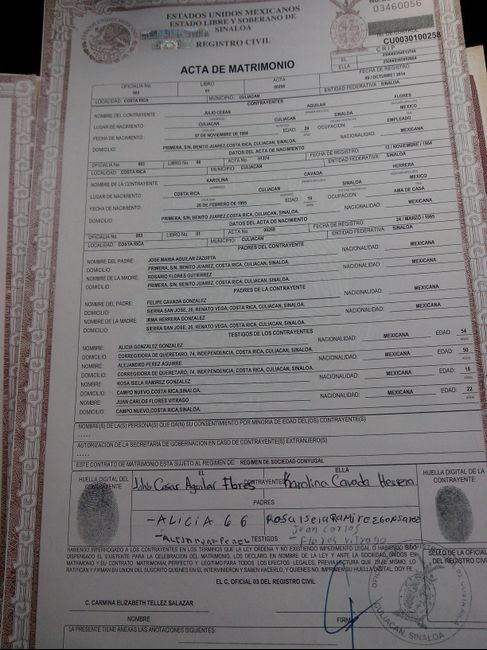 ESTADOS UNIDOS MEXICANOS
ESTADO LIBRE Y SOBERANO DE
SINALOA
REGISTRO CIVIL
03460056
CU0030100258
CRIP
EL
ELLA
ACTA DE MATRIMONIO
OFICIALIA No. LIBRO ACTA FECHA DE REGISTRO
003 01 00258 / OCTUBRE / 2014
LOCALIDAD: COSTA RICA MUNICIPIO: CULIACAN ENTIDAD FEDERATIVA: SINALOA
CONTRAYENTES
JULIO CESAR AGUILAR FLORES
NOMBRE DEL CONTRAYENTE
LUGAR DE NACIMIENTO: CULIACAN CULIACAN SINALOA MEXICO
FECHA DE NACIMIENTO: 07 DE NOVIEMBRE DE EDAD: OCUPACION: EMPLEADO
DOMICILIO: PRIMERA, S/N, BENITO JUAREZ, COSTA RICA, CULIACAN, SINALOA. MEXICANA
DATOS DEL ACTA DE NACIMIENTO
OFICIALIA No: 003 LIBRO No: ACTA No: 01374 FECHA DE REGISTRO: 12 / NOVIEMBRE /
LOCALIDAD: COSTA RICA MUNICIPIO: CULIACAN ENTIDAD FEDERATIVA: SINALOA
KAROLINA CAVADA HERRERA
NOMBRE DE LA CONTRAYENTE
LUGAR DE NACIMIENTO: COSTA RICA CULIACAN SINALOA MEXICO
FECHA DE NACIMIENTO: 26 DE FEBRERO DE 1995 EDAD: 19 OCUPACION: AMA DE CASA
DOMICILIO: PRIMERA, S/N, BENITO JUAREZ, COSTA RICA, CULIACAN, SINALOA. MEXICANA
DATOS DEL ACTA DE NACIMIENTO
OFICIALIA No: 003 LIBRO No: 01 ACTA No: FECHA DE REGISTRO: 24 / MARZO / 1995
LOCALIDAD: COSTA RICA MUNICIPIO: CULIACAN ENTIDAD FEDERATIVA: SINALOA
PADRES DEL CONTRAYENTE
NOMBRE DEL PADRE: JOSE MARIA AGUILAR ZAZUETA NACIONALIDAD: MEXICANA
DOMICILIO: PRIMERA, S/N, BENITO JUAREZ, COSTA RICA, CULIACAN, SINALOA.
NOMBRE DE LA MADRE: ROSARIO FLORES GUTIERREZ NACIONALIDAD: MEXICANA
DOMICILIO: PRIMERA, S/N, BENITO JUAREZ, COSTA RICA, CULIACAN, SINALOA.
PADRES DE LA CONTRAYENTE
NOMBRE DEL PADRE: FELIPE CAVADA GONZALEZ NACIONALIDAD: MEXICANA
DOMICILIO: SIERRA SAN JOSE, 26, RENATO VEGA, COSTA RICA, CULIACAN, SINALOA.
NOMBRE DE LA MADRE: IRMA HERRERA GONZALEZ NACIONALIDAD: MEXICANA
DOMICILIO: SIERRA SAN JOSE, 26, RENATO VEGA, COSTA RICA, CULIACAN, SINALOA.
TESTIGOS DE LOS CONTRAYENTES
NOMBRE: ALICIA GONZALEZ GONZALEZ NACIONALIDAD: MEXICANA EDAD: 54
DOMICILIO: CORREGIDORA DE QUERETARO, 74, INDEPENDENCIA, COSTA RICA, CULIACAN, SINALOA.
NOMBRE: ALEJANDRO PEREZ AGUIRRE NACIONALIDAD: MEXICANA EDAD: 50
DOMICILIO: CORREGIDORA DE QUERETARO, 74, INDEPENDENCIA, COSTA RICA, CULIACAN, SINALOA.
NOMBRE: ROSA ISELA RAMIREZ GONZALEZ NACIONALIDAD: MEXICANA EDAD: 18
DOMICILIO: CAMPO NUEVO, COSTA RICA, SINALOA.
NOMBRE: JUAN CARLOS FLORES VITRAGO NACIONALIDAD: MEXICANA EDAD: 22
DOMICILIO: CAMPO NUEVO, COSTA RICA, SINALOA.
NOMBRE(S) DE LA(S) PERSONA(S) QUE DA(N) SU CONSENTIMIENTO POR MINORIA DE EDAD DEL(OS) CONTRAYENTE(S)
-----
AUTORIZACION DE LA SECRETARIA DE GOBERNACION EN CASO DE CONTRAYENTE(S) EXTRANJERO(S)
-----
ESTE CONTRATO DE MATRIMONIO ESTA SUJETO AL REGIMEN DE: REGIMEN DE SOCIEDAD CONYUGAL
EL ELLA
HUELLA DIGITAL DEL CONTRAYENTE
Julio Cesar Aguilar Flores CONTRAYENTES Karolina Cavada Herrera
HUELLA DIGITAL DE LA CONTRAYENTE
PADRES
-ALICIA G G Rosa isela Ramirez Gonsalez
TESTIGOS Juan Carlos
- Flores Vitrago
SELLO DE LA OFICIALIA DEL REGISTRO CIVIL
EL C. OFICIAL 03 DEL REGISTRO CIVIL
C. CARMINA ELIZABETH TELLEZ SALAZAR
NOMBRE FIRMA
CULIACAN, SINALOA
LA PRESENTE TIENE ANEXAS LAS ANOTACIONES SIGUIENTES: